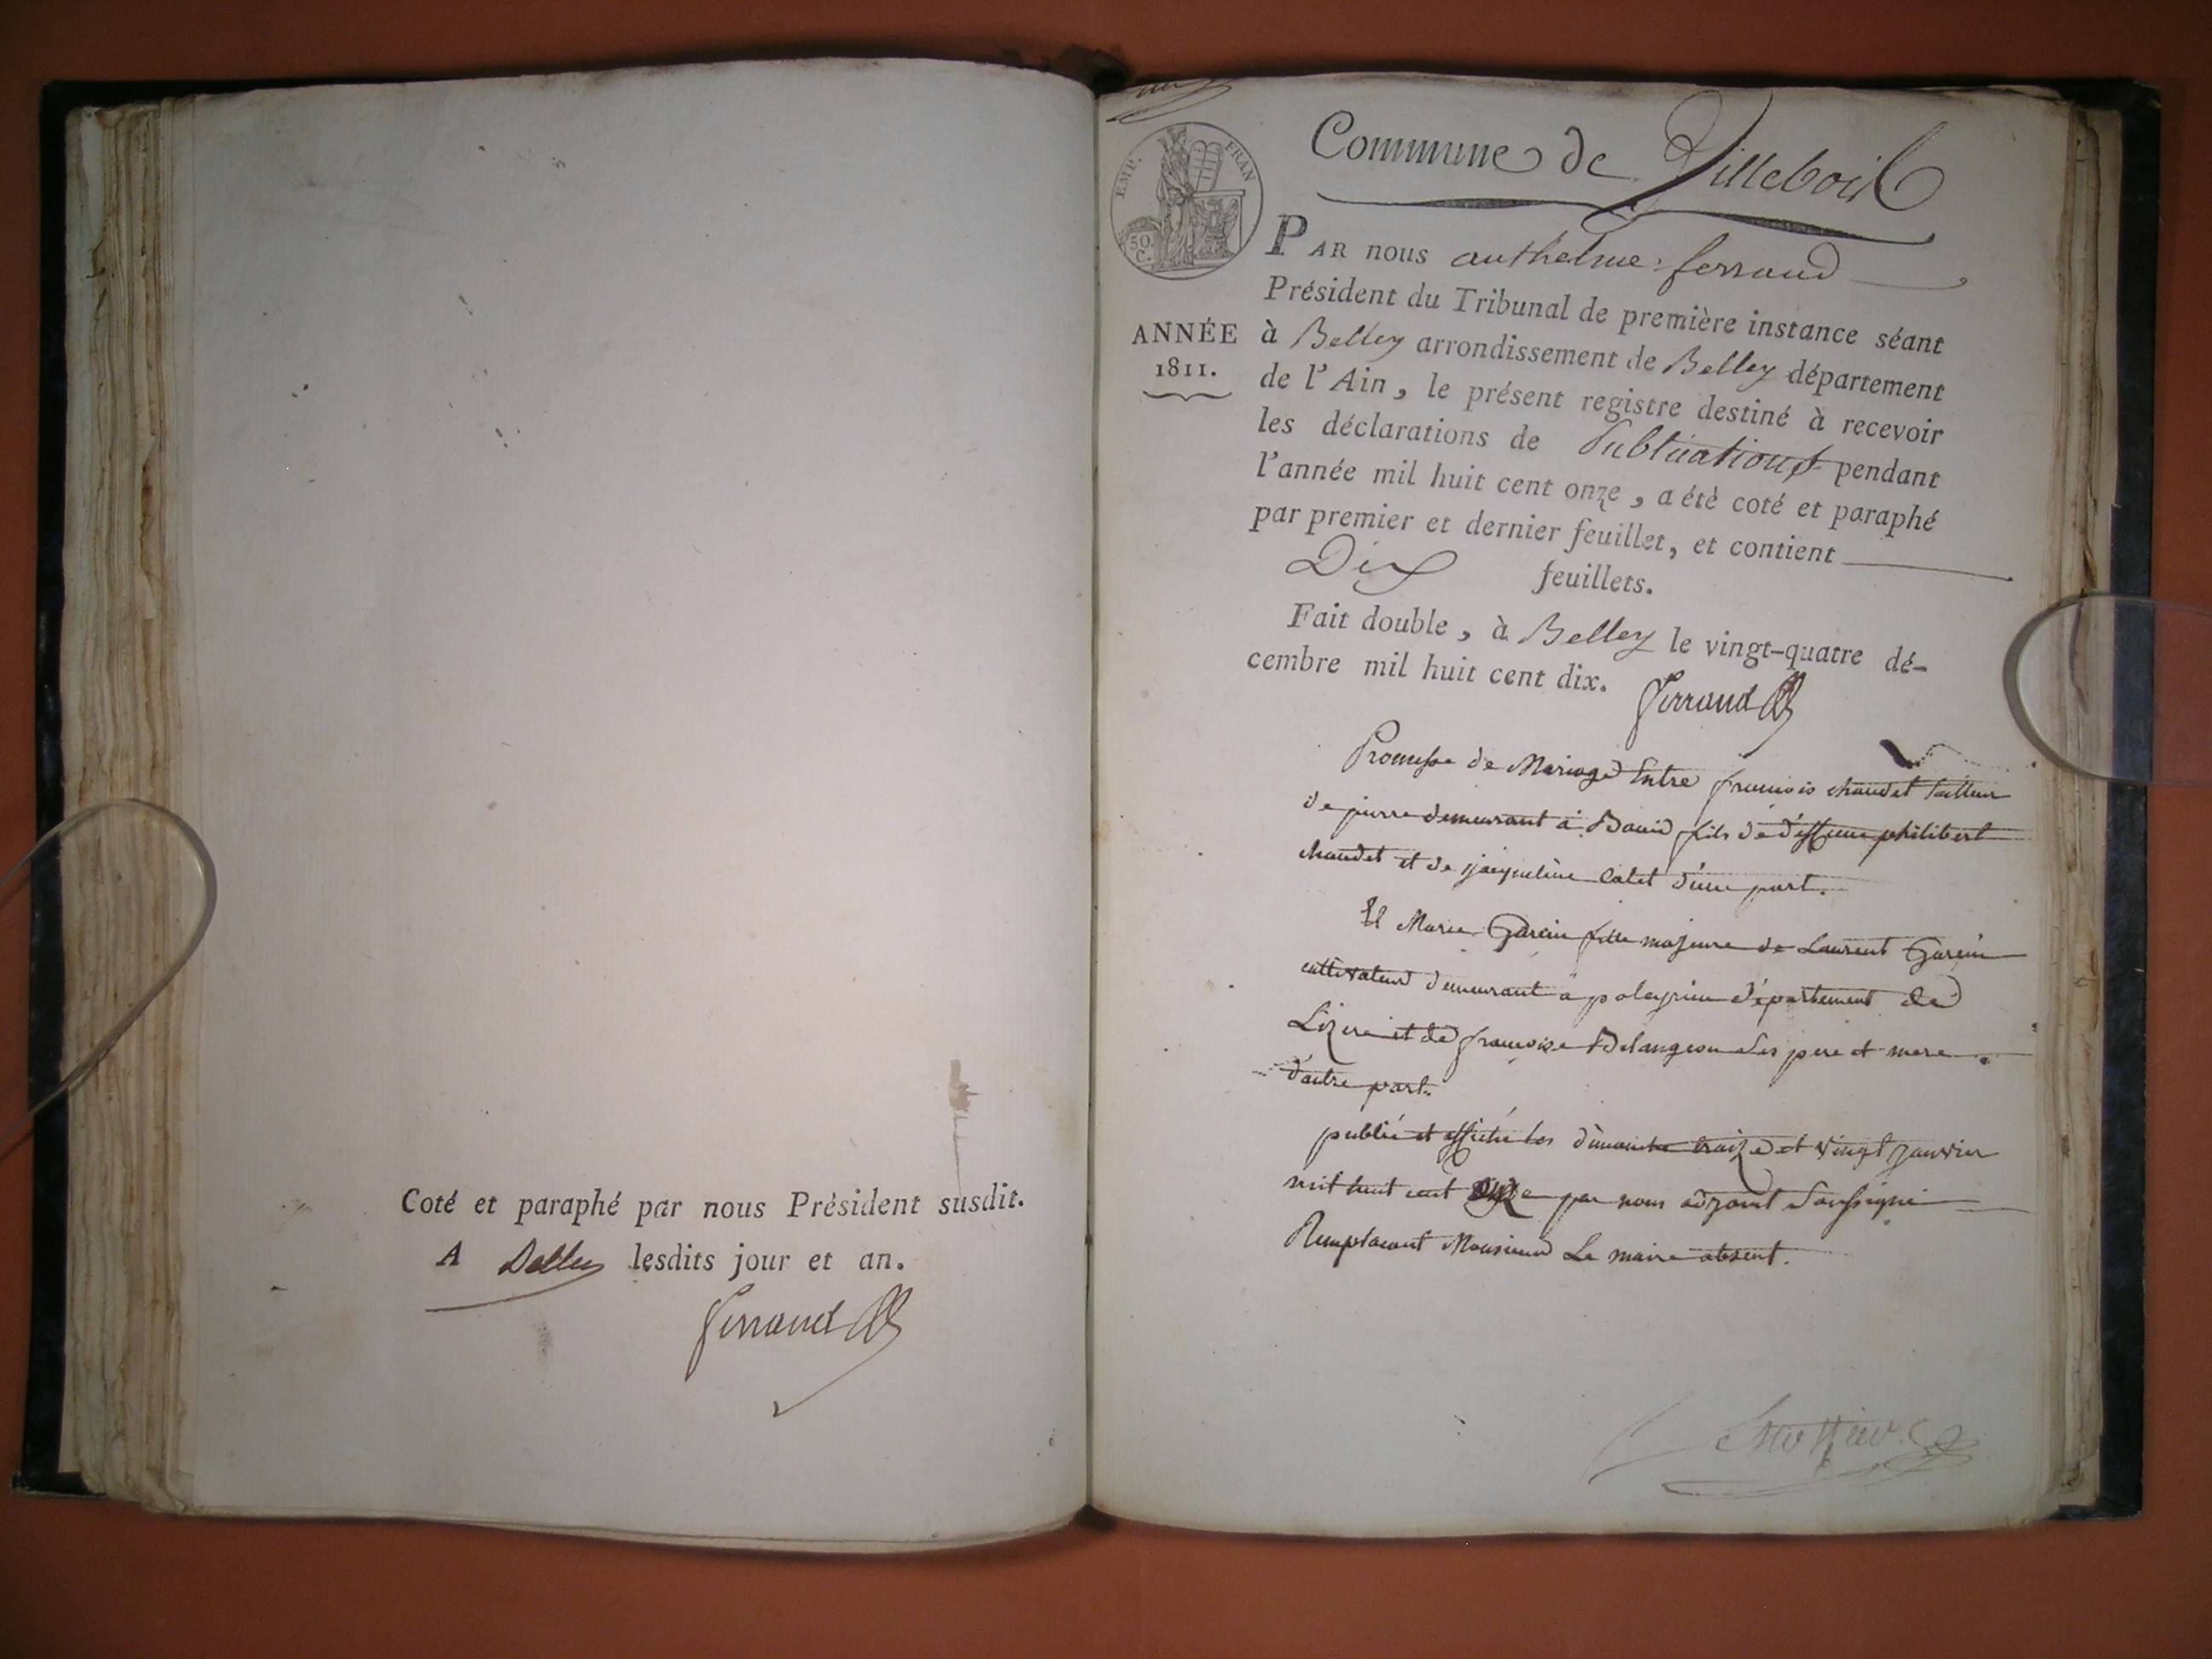 Coté et paraphé par nous Président susdit.
A Belley lesdits jour et an.
Ferraud
EMP. FRAN
50. C.
Commune de Villebois
PAR nous anthelme ferraud
Président du Tribunal de première instance séant
ANNÉE 1811.
à Belley arrondissement de Belley département
de l'Ain, le présent registre destiné à recevoir
les déclarations de Publications pendant
l'année mil huit cent onze, a été coté et paraphé
par premier et dernier feuillet, et contient
Dix feuillets.
Fait double, à Belley le vingt-quatre dé-
cembre mil huit cent dix.
Ferraud
Promesse de Mariage Entre francois chaudet tailleur
de pierre demeurant à Bouis fils de deffunt philibert
chaudet et de jacqueline Calet d'une part.
Et Marie Garcin fille majeure de Laurent Garcin
cultivateur demeurant a poleyrieu département de
L'izere et de francoise Belangeon ses pere et mere
d'autre part.
publié et affiché les dimanche traize et vingt janvier
mil huit cent onze par nous adjoint Soussigné
Remplacant Monsieur Le maire absent.